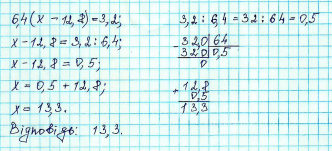 64(x - 12,8) = 3,2;
x - 12,8 = 3,2 : 6,4;
x - 12,8 = 0,5;
x = 0,5 + 12,8;
x = 13,3.
Відповідь: 13,3.
3,2 : 6,4 = 32 : 64 = 0,5
- 32,0 | 64
320 | 0,5
0
+ 12,8
0,5
13,3